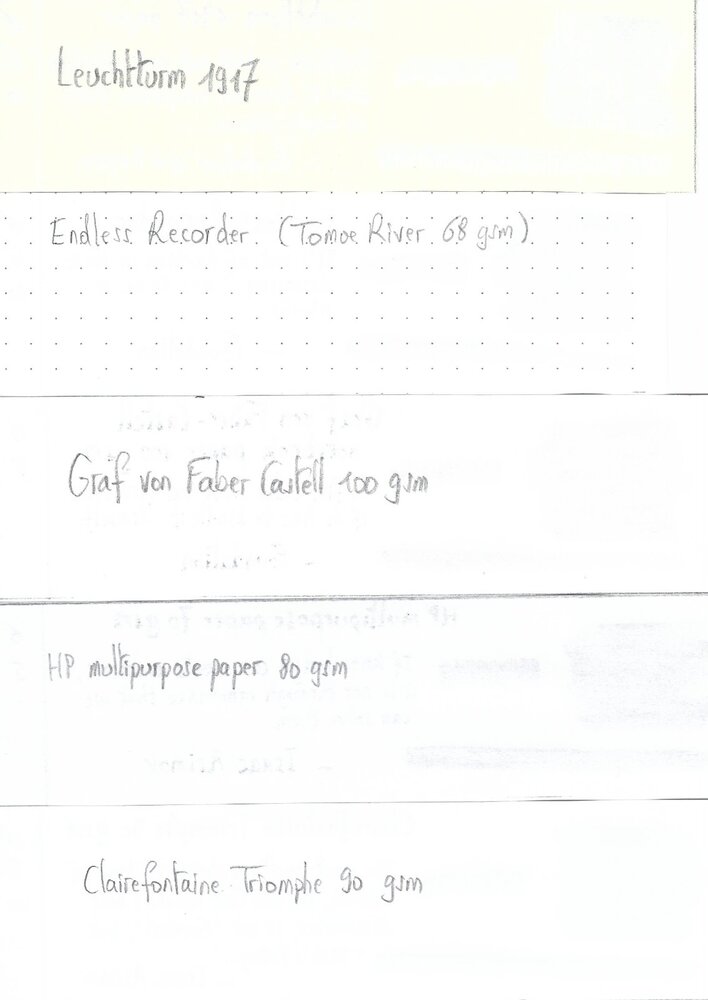 Leuchtturm 1917
Endless Recorder (Tomoe River 68 gsm)
Graf von Faber Castell 100 gsm
HP multipurpose paper 80 gsm
Clairefontaine Triomphe 90 gsm